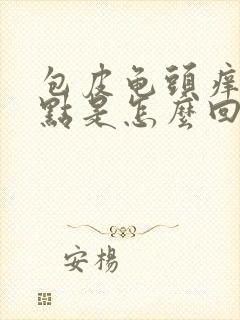 包皮龟頭痒
點是怎麼回
安楊